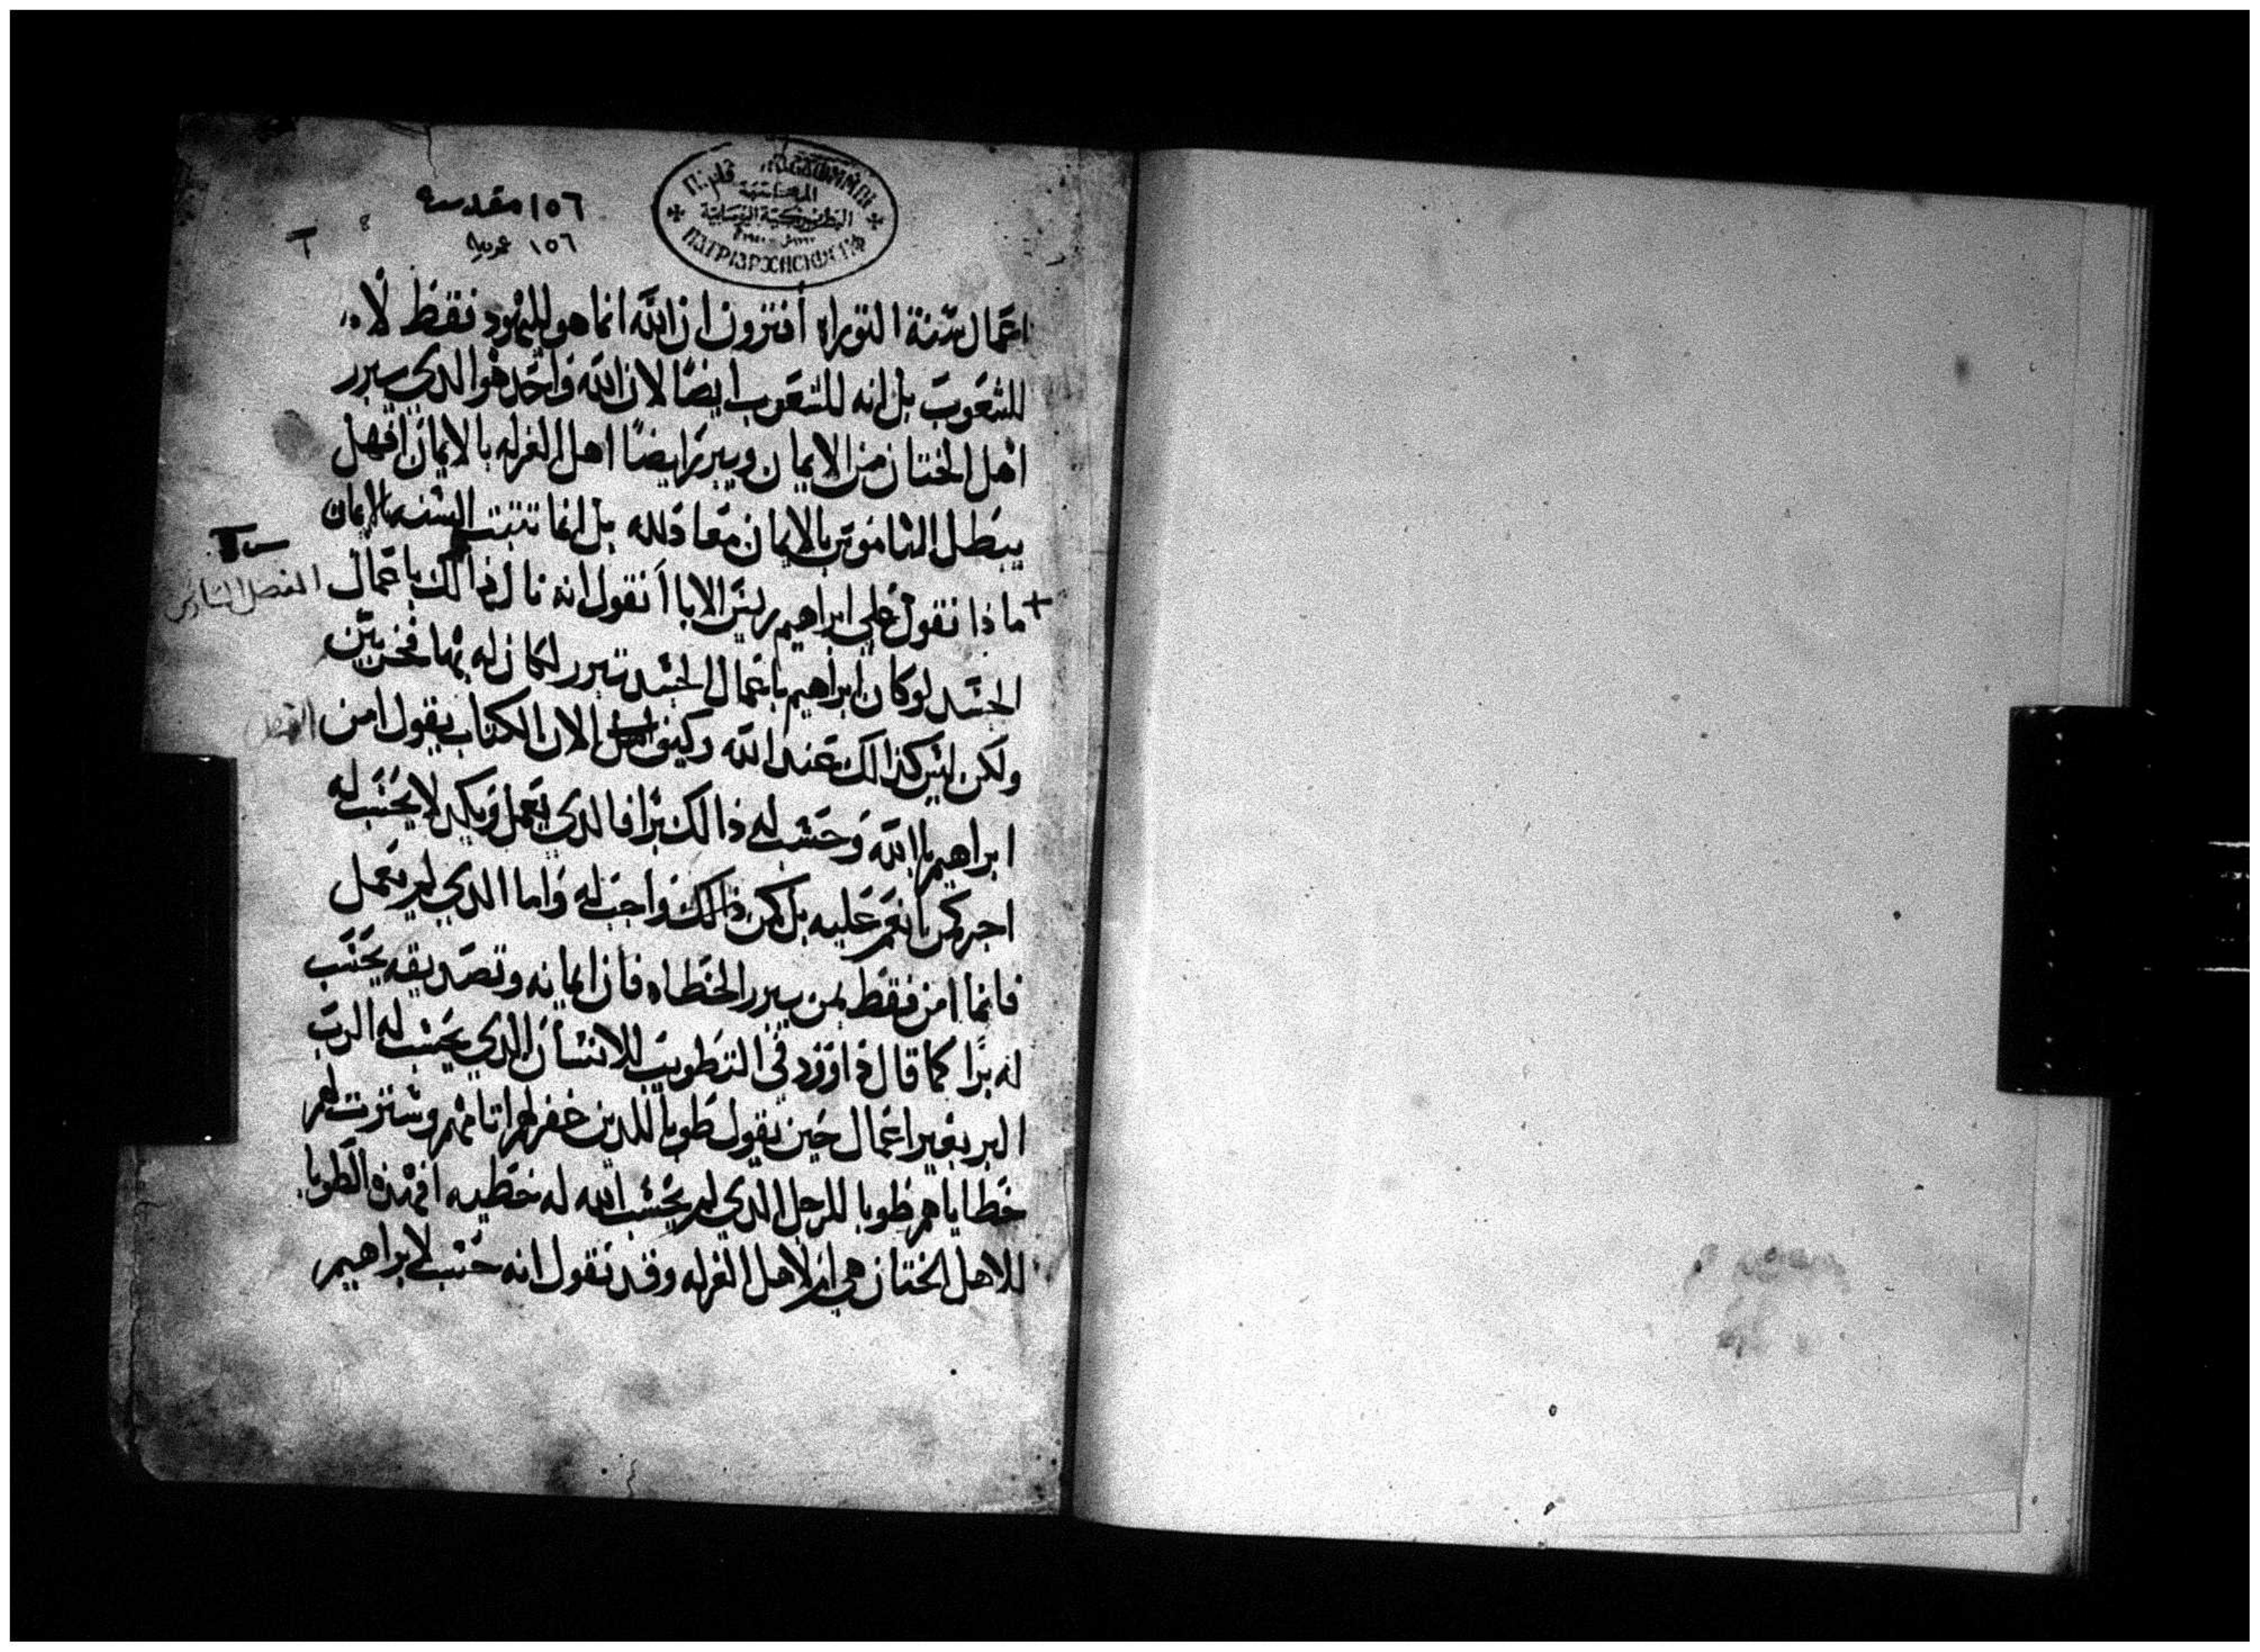 ١٥٦ مقدسه
١٥٦ عربيه
اعمال سنة التوراه أفترون ان الله انما هو لليهود فقط لا
للشعوب بل انه للشعوب ايضًا لان الله واحد هو الدي يبرر
اهل الختان من الايمان ويبرر ايضًا اهل الغرله بالايمان افهل
يبطل الناموس بالايمان معاد الله بل انما تثبت السنه بالايمان
ماذا نقول على ابراهيم ريس الابا أنقول انه نال ذالك باعمال
الفصل السادس
الجسد لو كان ابراهيم باعمال الجسد تبرر لكان له بها فخر
ولكن ليس كذالك عند الله الان الكتاب يقول امن
ابراهيم بالله وحسب له ذالك برا فالدي يعمل ويكد لا يحسب له
اجر كمن انعم عليه بل كمن ذالك واجب له واما الدي لم يعمل
فانما امن فقط بمن يبرر الخطاه فان ايمانه وتصديقه يحسب
له برًا كما قال داوود في التطويب للانسان الدي يحسب له الرب
البر بغير اعمال حين يقول طوبا للدين غفر لهم اتامهم وسترت لهم
خطاياهم طوبا للرجل الدي لم يحسب الله له خطيه افهذه الطوبا
للاهل الختان هي ام لاهل الغرله وقد نقول انه حسب لابراهيم